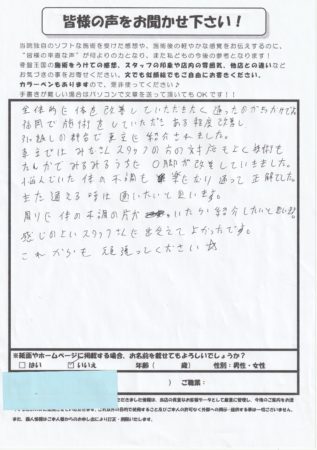 皆様の声をお聞かせ下さい！
当院独自のソフトな施術を受けた感想や、施術後の軽やかな感覚をお伝えするのに、
"皆様の率直な声"が何よりの力となり、また私どもの今後の参考となります！
骨盤王国の施術をうけての感想、スタッフの印象や店内の雰囲気、他店との違いなど
お気づきの事をお寄せください。文でも似顔絵でもご自由にお書きください。
カラーペンもありますので、是非使ってください♪
手書きが難しい場合はパソコンで文章を送って頂いてもOKです！！
全体的に体を改善していただきたく通ったのがきっかけで
福岡で施術をしていただき ある程度改善し
引越しの都合で東京に紹介されました。
東京では みなさんスタッフの方の対応もよく 技術も
たんかで みるみるうちに O脚が改善していきました。
悩んでいた 体の不調も 楽になり 通って正解でした。
また通える時は 通いたいと思います。
周りに 体の不調の方が いたら 紹介したいと思います
感じのよいスタッフさんに 出会えて よかったです。
これからも 頑張ってください☆
※紙面やホームページに掲載する場合、お名前を載せてもよろしいでしょうか？
□はい ☑いいえ 年齢（ 歳） 性別：男性・女性
） ご職業：